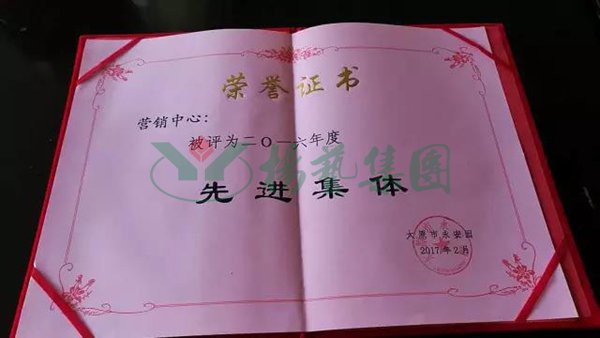 荣誉证书
营销中心：
被评为二O一六年度
杨艺集团
先进集体
太原市永安园
2017年2月